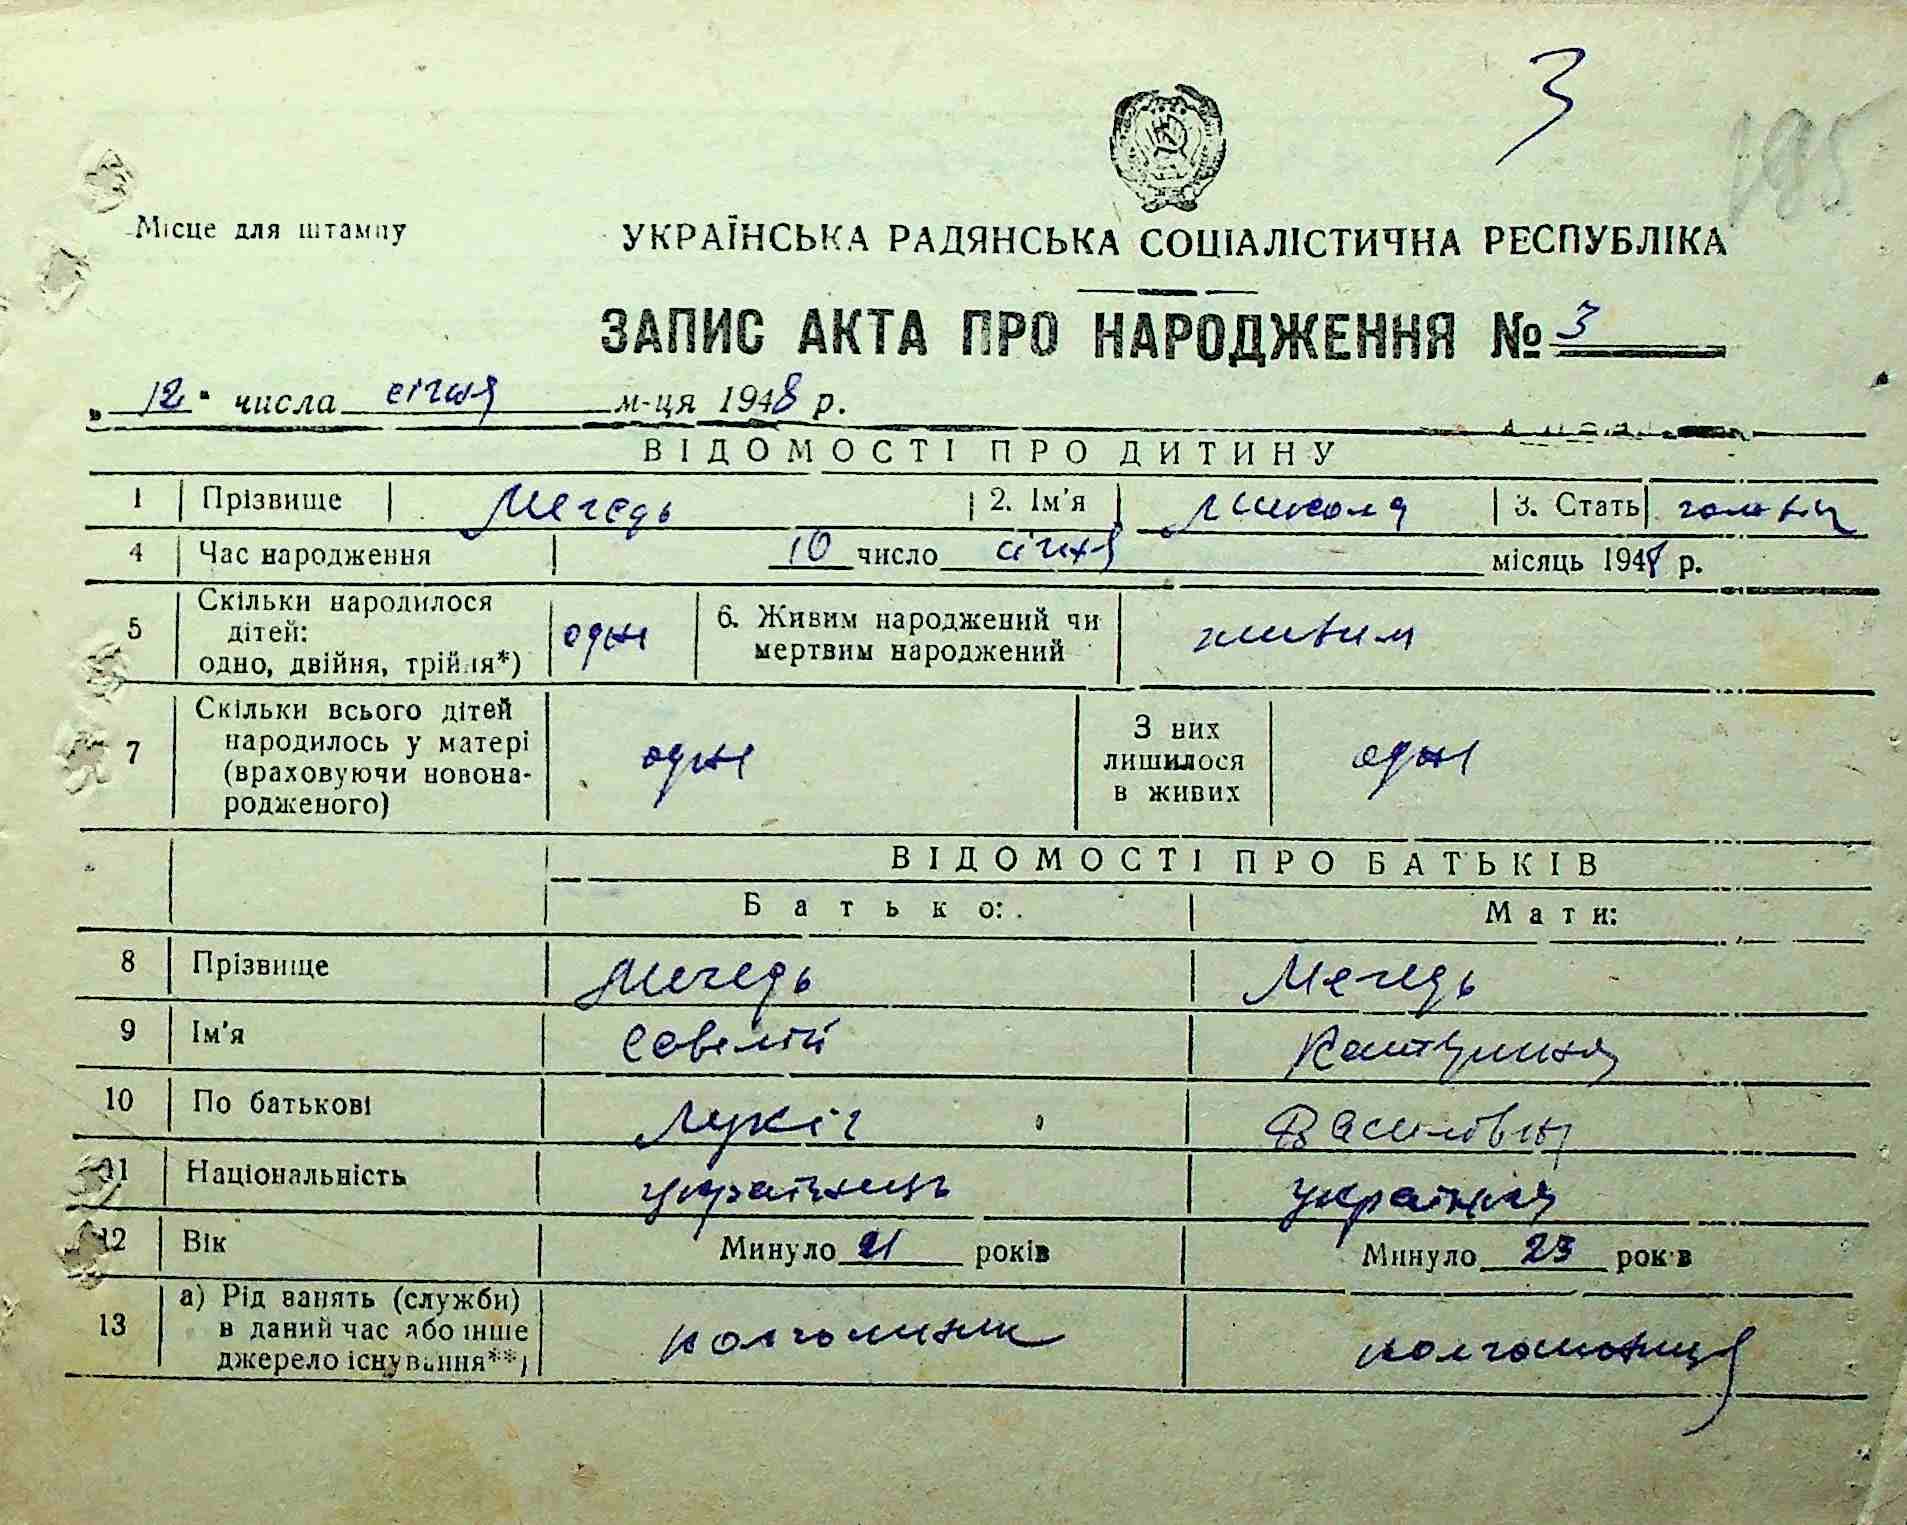 3
195
Місце для штампу
УКРАЇНСЬКА РАДЯНСЬКА СОЦІАЛІСТИЧНА РЕСПУБЛІКА
ЗАПИС АКТА ПРО НАРОДЖЕННЯ № 3
„12" числа січня м-ця 1948 р.
ВІДОМОСТІ ПРО ДИТИНУ
1 Прізвище Мегедь 2. Ім'я Микола 3. Стать
4 Час народження 10 число січня місяць 1948 р.
5 Скільки народилося дітей: одно, двійня, трійня*) одна 6. Живим народжений чи мертвим народжений живим
7 Скільки всього дітей народилось у матері (враховуючи новонародженого) одна З них лишилося в живих одна
ВІДОМОСТІ ПРО БАТЬКІВ
Батько: Мати:
8 Прізвище Мегедь Мегедь
9 Ім'я Савелій Катерина
10 По батькові Лукіч Василовна
11 Національність українець українка
12 Вік Минуло 21 років Минуло 23 років
13 а) Рід занять (служби) в даний час або інше джерело існування**) колгосник колгосниця